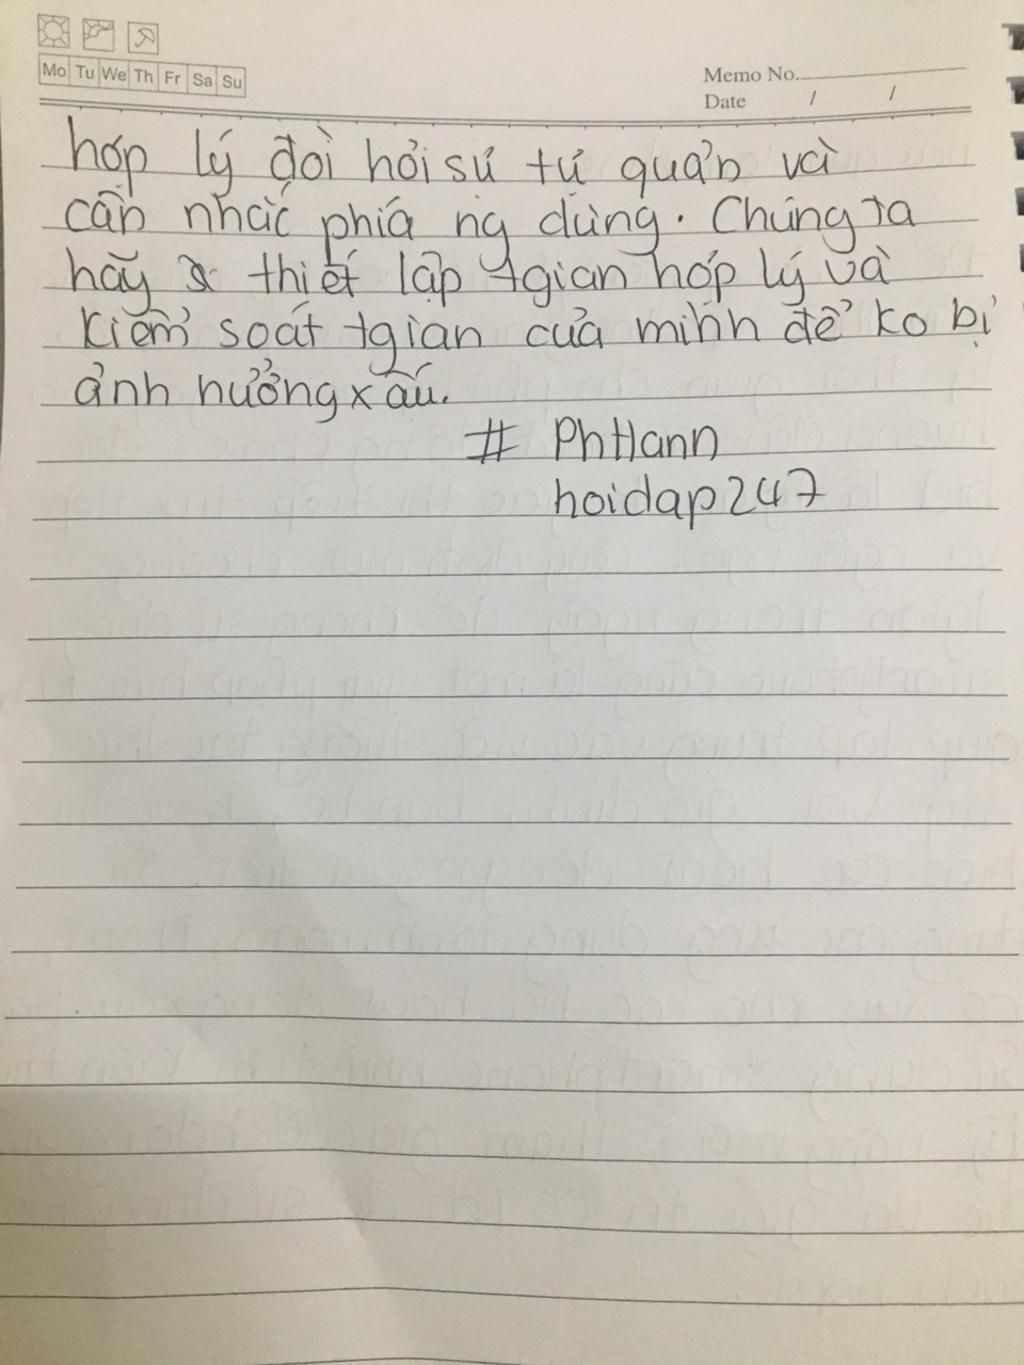 Mo Tu We Th Fr Sa Su
Memo No.
Date / /
hợp lý đòi hỏi sự tự quản và
cân nhắc phía ng dùng. Chúng ta
hãy thiết lập tgian hợp lý và
kiểm soát tgian của mình để ko bị
ảnh hưởng xấu.
# PhHann
hoidap247